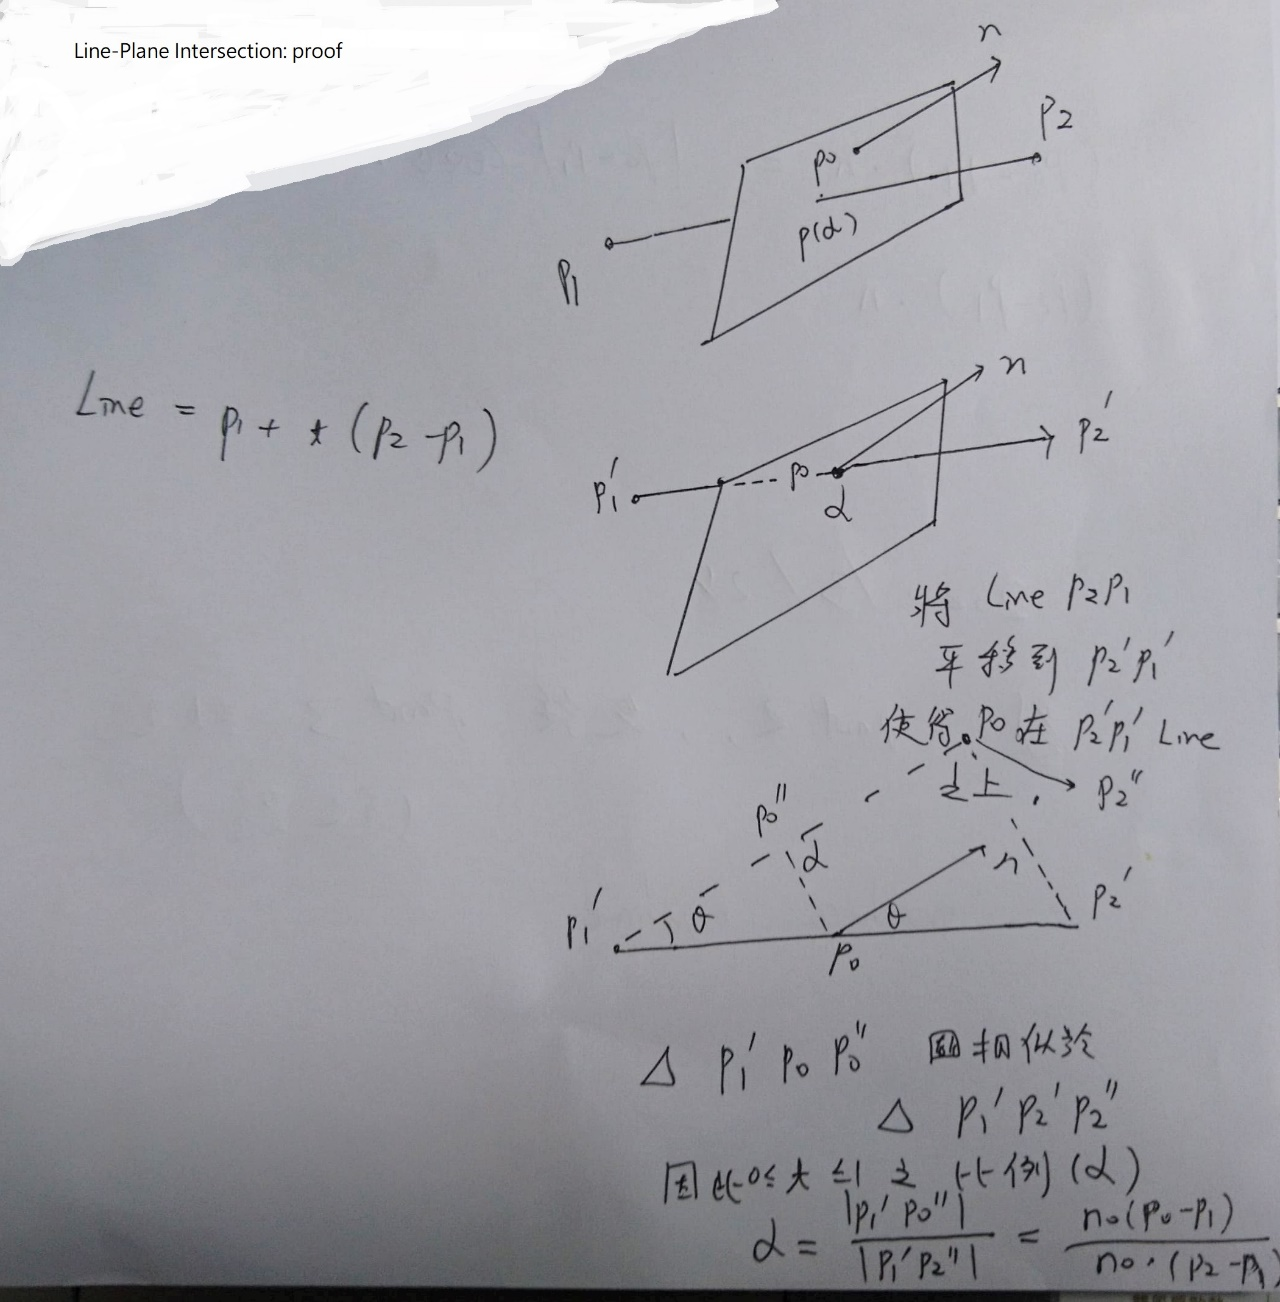 Line-Plane Intersection: proof
n
p2
p0
p(α)
p1
n
Line = p1 + t (p2 - p1)
p2'
p1'
p0
α
將 Line p2p1
平移到 p2'p1'
使得 p0 在 p2'p1' Line
之上
p2"
p0"
α
n
p1'
θ
θ
p2'
p0
Δ p1' p0 p0" 相似於
Δ p1' p2' p2"
因此 0≤ t ≤1 之比例 (α)
α = |p1' p0"| / |p1' p2"| = n·(p0-p1) / n·(p2-p1)